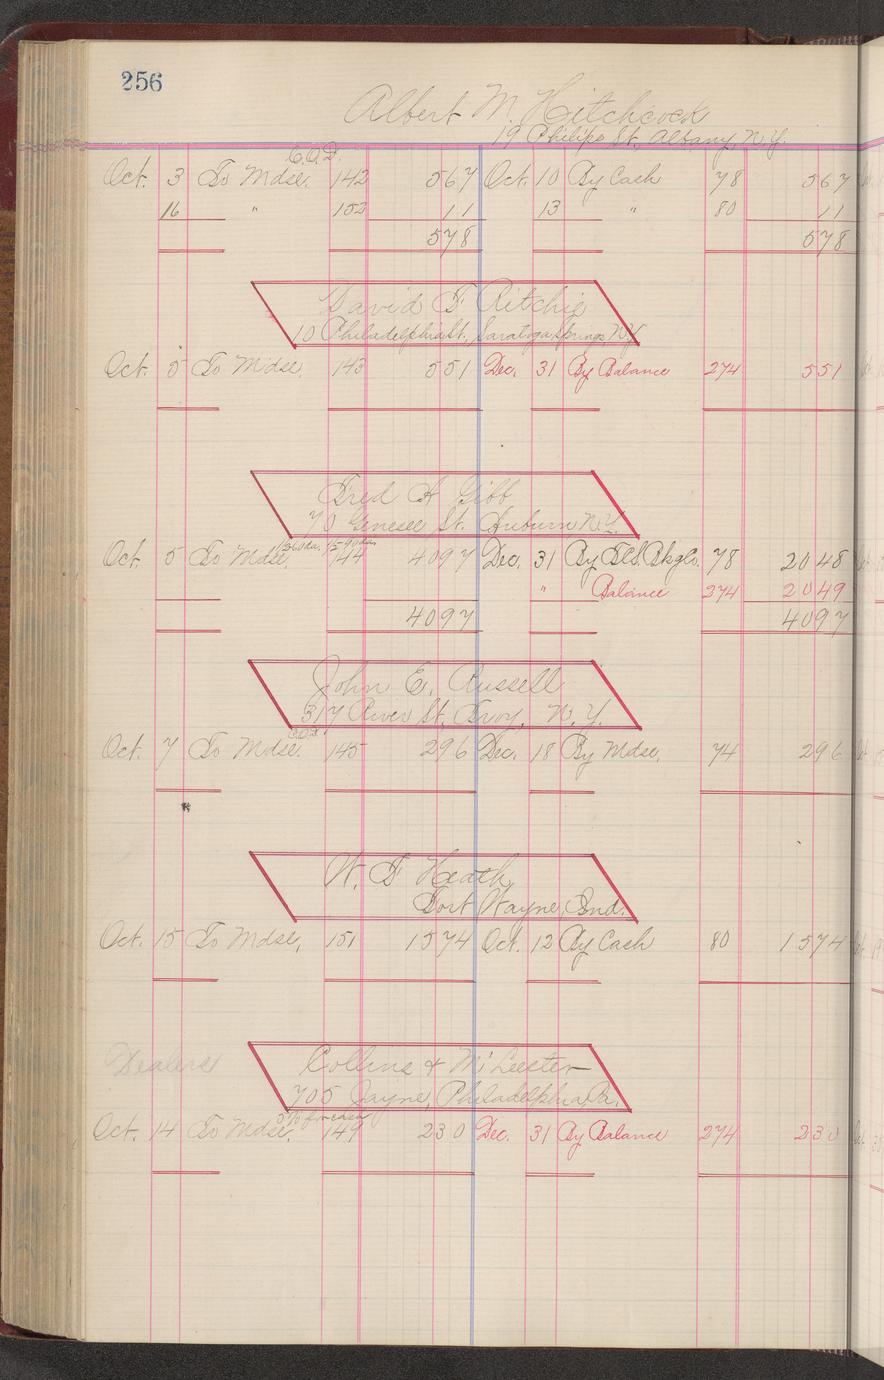 256
Albert M. Hitchcock
19 Philips St. Albany N.Y.
C.O.D.
Oct. 3 To Mdse. 142 567 Oct. 10 By Cash 78 567
16 " 152 11 13 " 80 11
578 578
David F Ritchie
10 Philadelphia St., Saratoga Springs N.Y.
Oct. 5 To Mdse. 143 551 Dec. 31 By Balance 274 551
Fred A Gibb
70 Genesee St. Auburn N.Y.
Oct. 5 To Mdse. 144 4097 Dec. 31 By 78 2048
" Balance 274 2049
4097 4097
John E. Russell
317 River St. Troy, N.Y.
C.O.D.
Oct. 7 To Mdse. 145 296 Dec. 18 By Mdse. 74 296
W. F Heath
Fort Wayne, Ind.
Oct. 15 To Mdse, 151 1574 Oct. 12 By Cash 80 1574
Dealers Collins & McLeester
705 Jayne, Philadelphia, Pa.
5% for cash
Oct. 14 To Mdse. 149 230 Dec. 31 By Balance 274 230